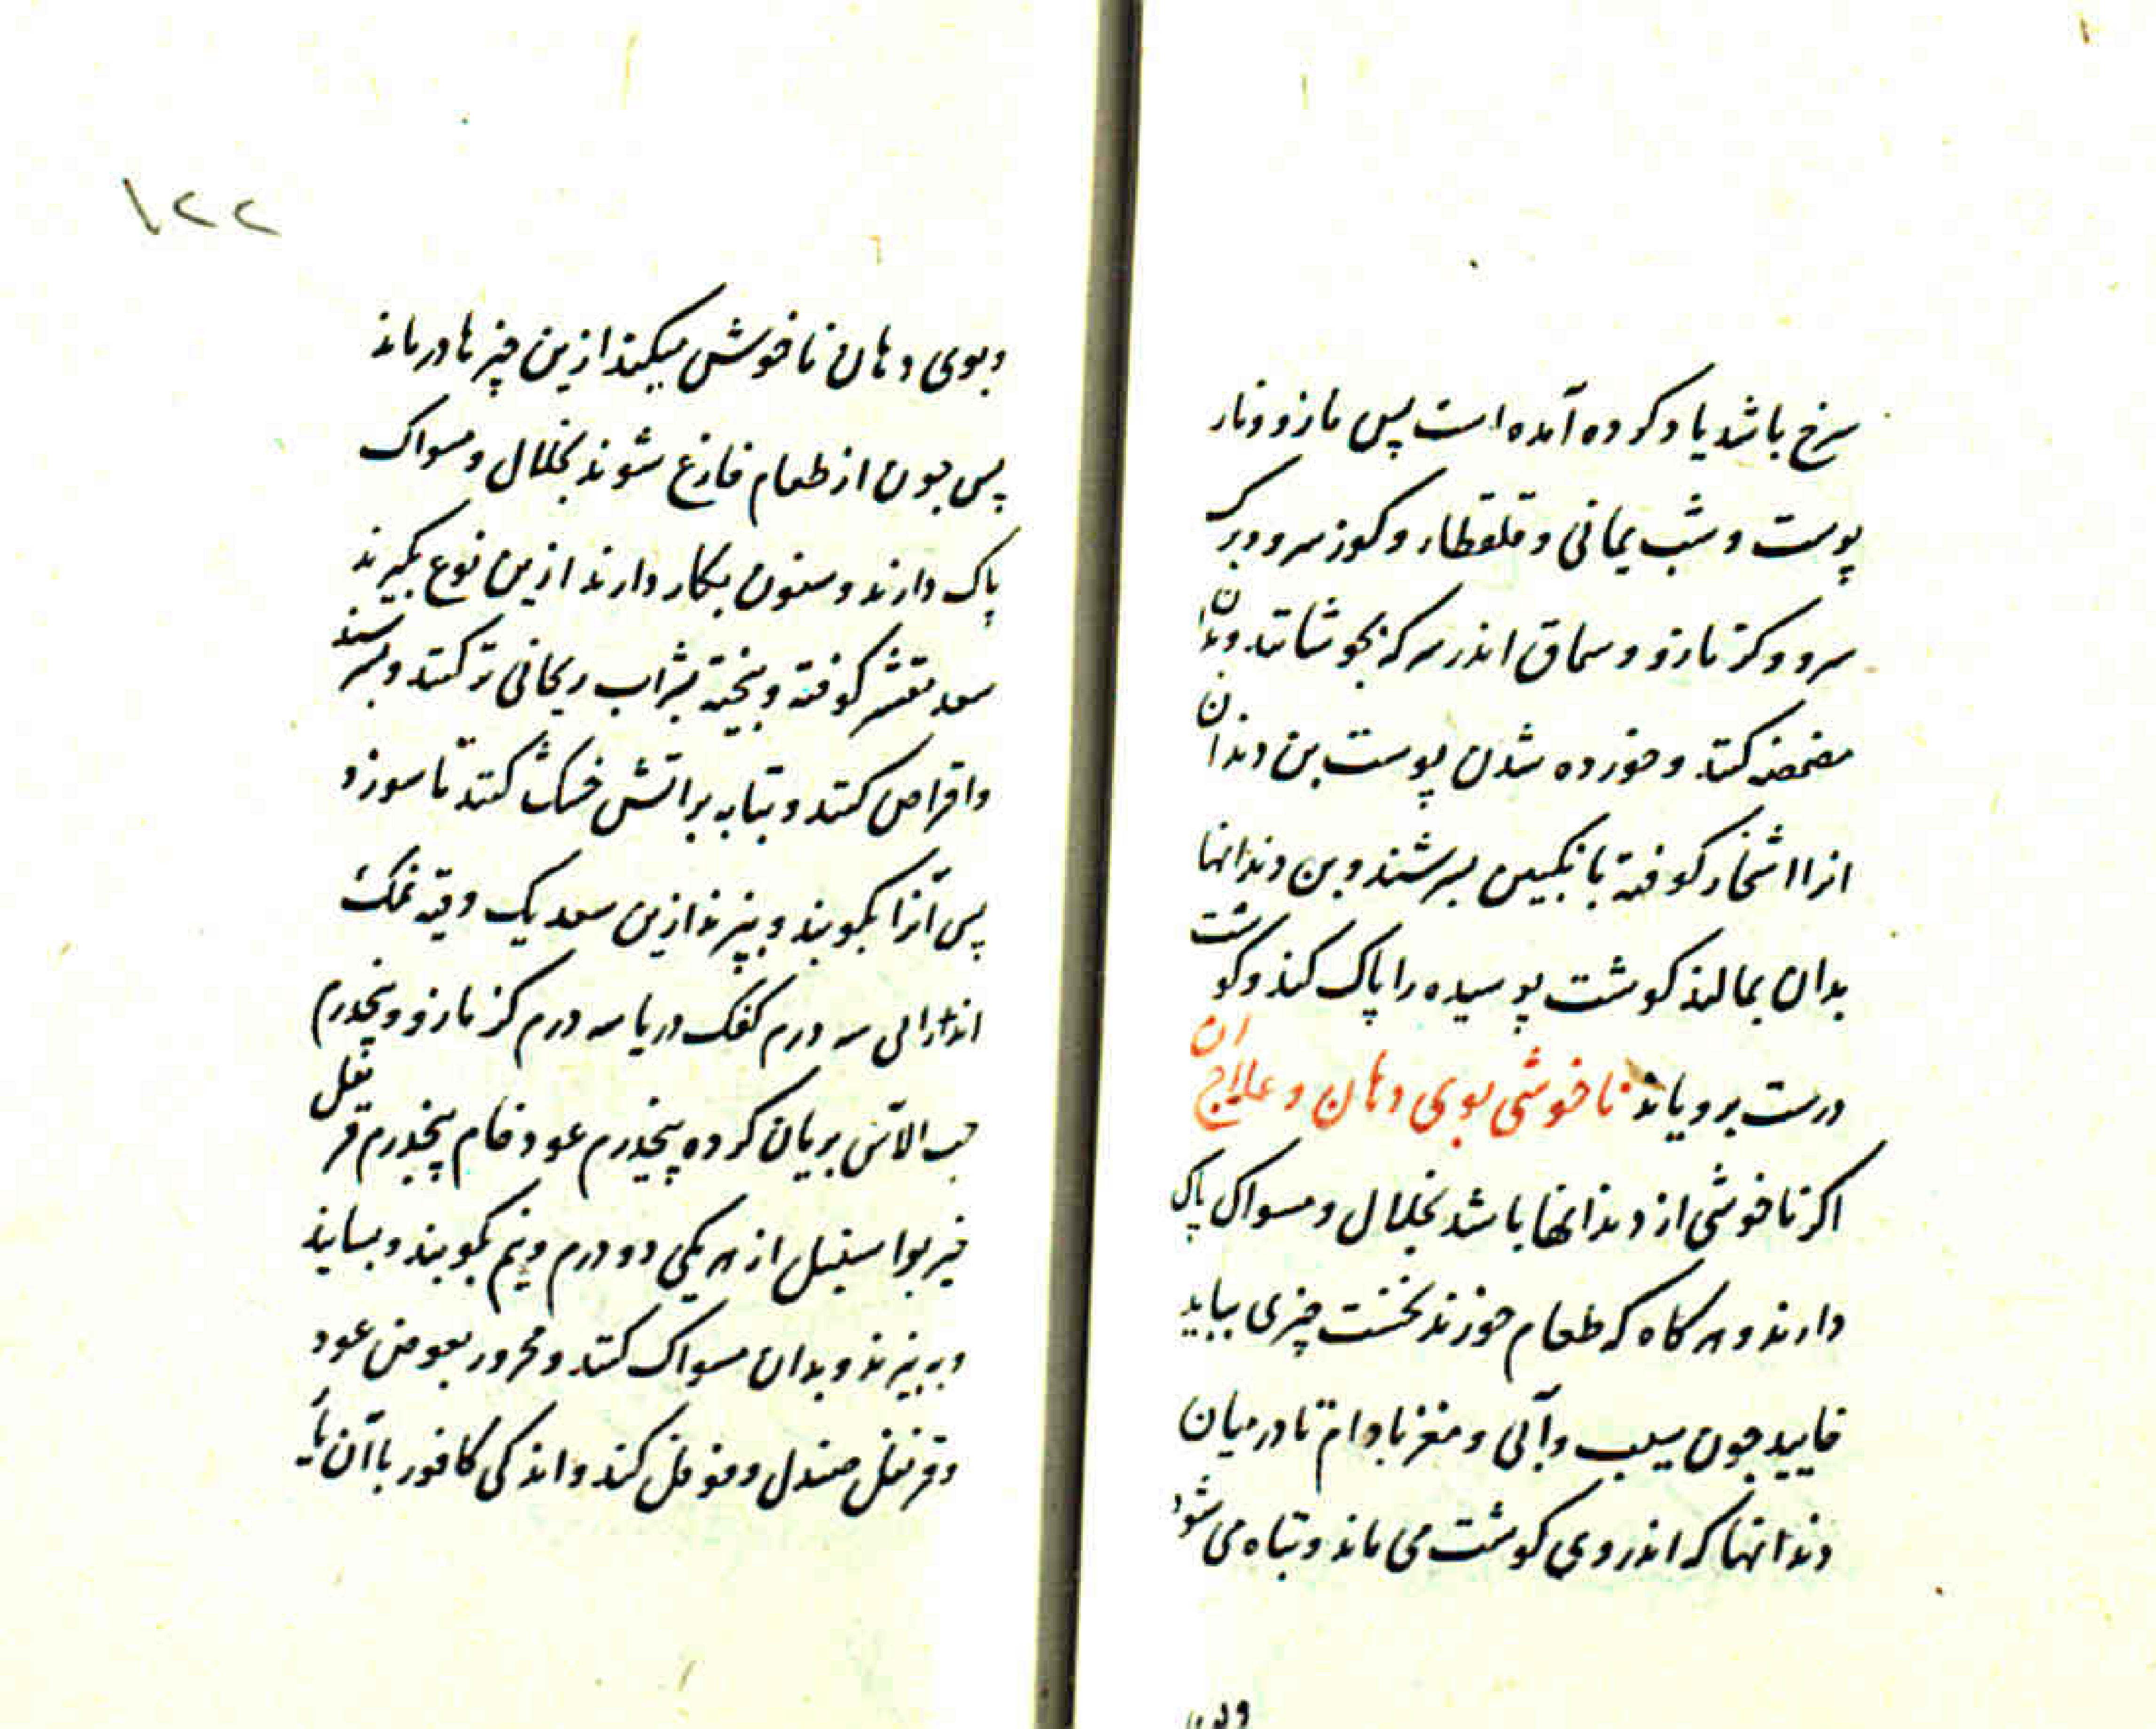 سرخ باشد یاد کرده آمده است پس مازو و نار
پوست و شب یمانی و قلقطار و کوز سرو و برک
سرو و کزمازو و سماق اندر سرکه بجوشانند و بدان
مضمضه کنند و خورده شدن پوست بن دندان
انرا اشخار کوفته بانکبین بسرشند و بن دندانها
بدان بمالند کوشت پوسیده را پاک کند و کوشت
درست برویاند ناخوشی بوی دهان و علاج ان
اکر ناخوشی از دندانها باشد بخلال و مسواک پاک
دارند و هر کاه که طعام خورند نخست چیزی بباید
خایید جون سیب و آبی و مغز بادام تا در میان
دندانها که اندر وی کوشت می ماند و تباه می شود
۱۲۲
و بوی دهان ناخوش میکند ازین چیزها درماند
پس جون از طعام فارغ شوند بخلال و مسواک
پاک دارند و سنون بکار دارند ازین نوع بکیرند
سعد مقشر کوفته و بیخته بشراب ریحانی تر کنند و بسرشند
و اقراص کنند و بتابه بر اتش خشک کنند تا سوزد
پس آنرا بکوبند و ببیزند ازین سعد یک وقیه نمک
اندرانی سه درم کفک دریا سه درم کزمازو پنجدرم
حب الآس بریان کرده پنجدرم عود خام پنجدرم قرنفل
خیربوا سنبل از هر یکی دو درم و نیم بکوبند و بسایند
و ببیزند و بدان مسواک کنند و محرور بعوض عود
و قرنفل صندل و فوفل کند و اندکی کافور با آن